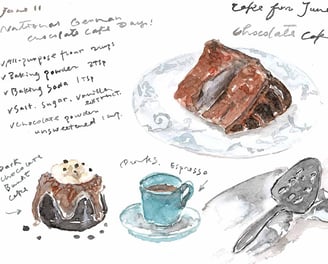 June 11
National German
Chocolate Cake Day!
✓All-purpose flour 2cups
✓Baking powder 2tsp
✓Baking Soda 1tsp
✓Salt, Sugar, Vanilla
extract.
✓Chocolate powder
unsweetened 1 cup.
Cake for June
Chocolate Cake
Dark
Chocolate
Bundt
Cake
Espresso